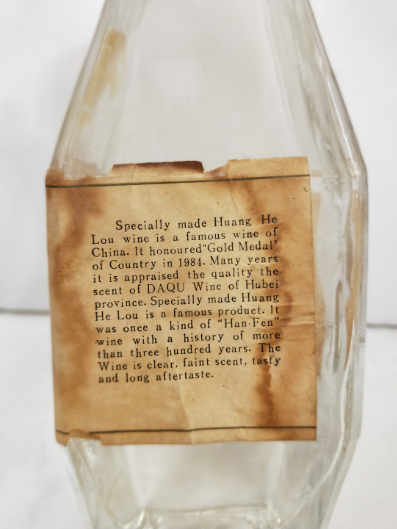 Specially made Huang He
Lou wine is a famous wine of
China. It honoured"Gold Medal"
of Country in 1984. Many years
it is appraised the quality the
scent of DAQU Wine of Hubei
province. Specially made Huang
He Lou is a famous product. It
was once a kind of "Han-Fen"
wine with a history of more
than three hundred years. The
Wine is clear, faint scent, tasty
and long aftertaste.